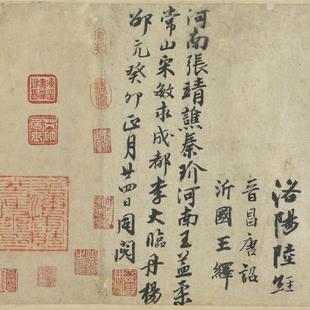 洛陽陸經
晉昌唐詔
沂國王繹
河南張靖譙秦玠河南王益柔
常山宋敏求成都李大臨丹楊
邵亢癸卯正月廿四日同閱